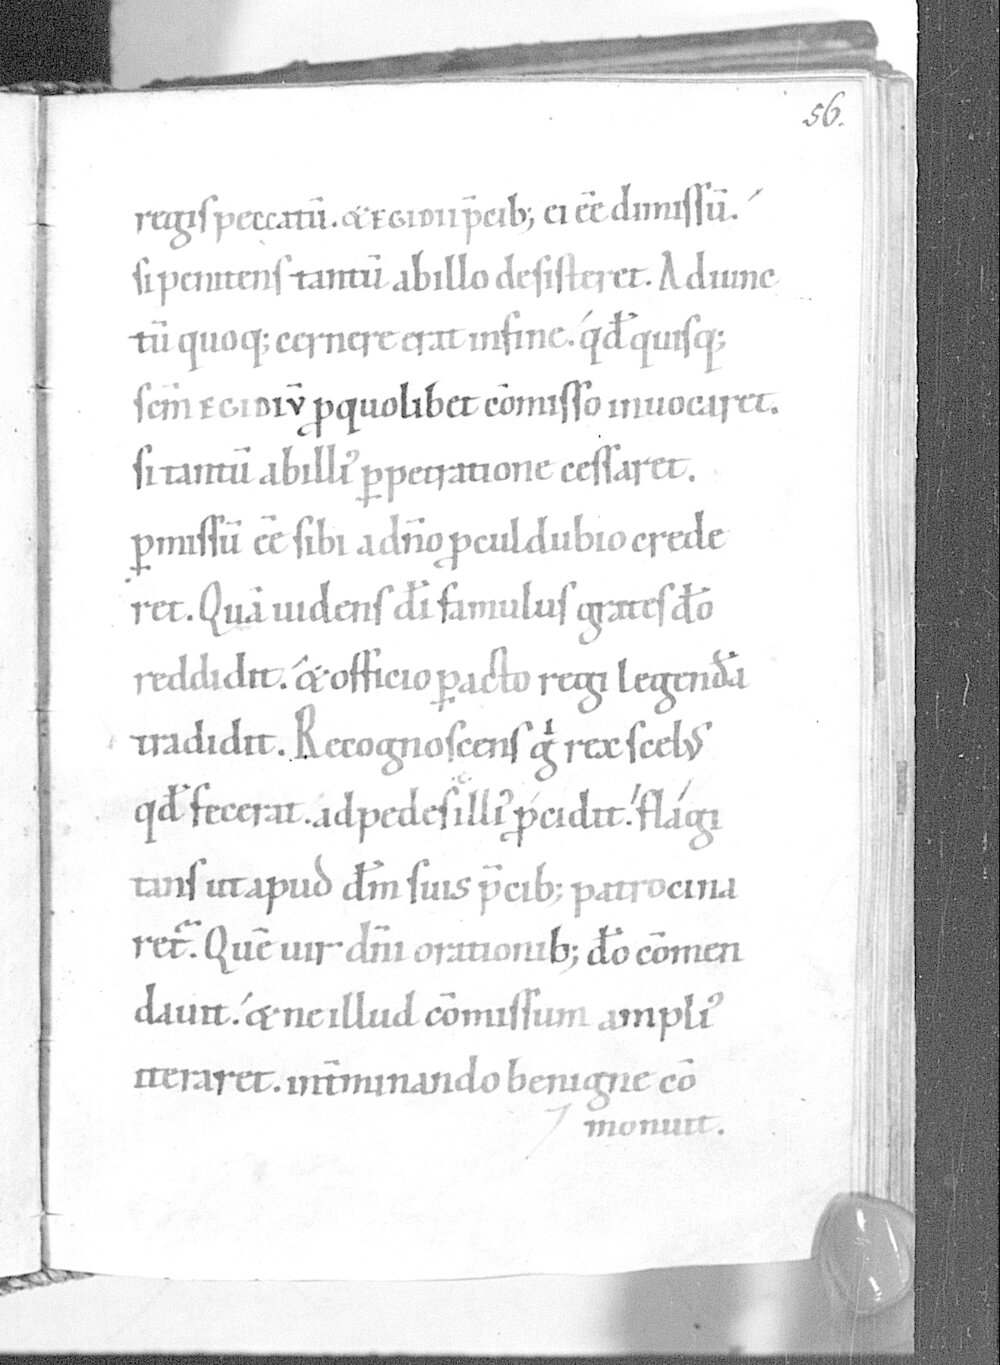 56.
regis peccatū. & EGIDII p̄cib; ei eē dimissū.
si penitens tantū ab illo desisteret. Adiunc
tū quoq; cernere erat in fine. qđ quisq;
scm̄ EGIDIV̄ ꝓ quolibet cōmisso inuocaret.
si tantū ab illiꝰ ꝑpetratione cessaret.
ꝑmissū eē sibi a dn̄o ꝓculdubio crede
ret. Quā uidens dī famulus grates dō
reddidit. & officio ꝑacto regi legenda
tradidit. Recognoscens gͥ rex scelus
qđ fecerat. ad pedes illiꝰ ꝓcidit. flagi
tans ut apud dm̄ suis p̄cib; patrocina
ret̄. Quē uir dn̄i orationib; dō cōmen
dauit. & ne illud cōmissum ampliꝰ
iteraret. int̄minando benigne cō
monuit.